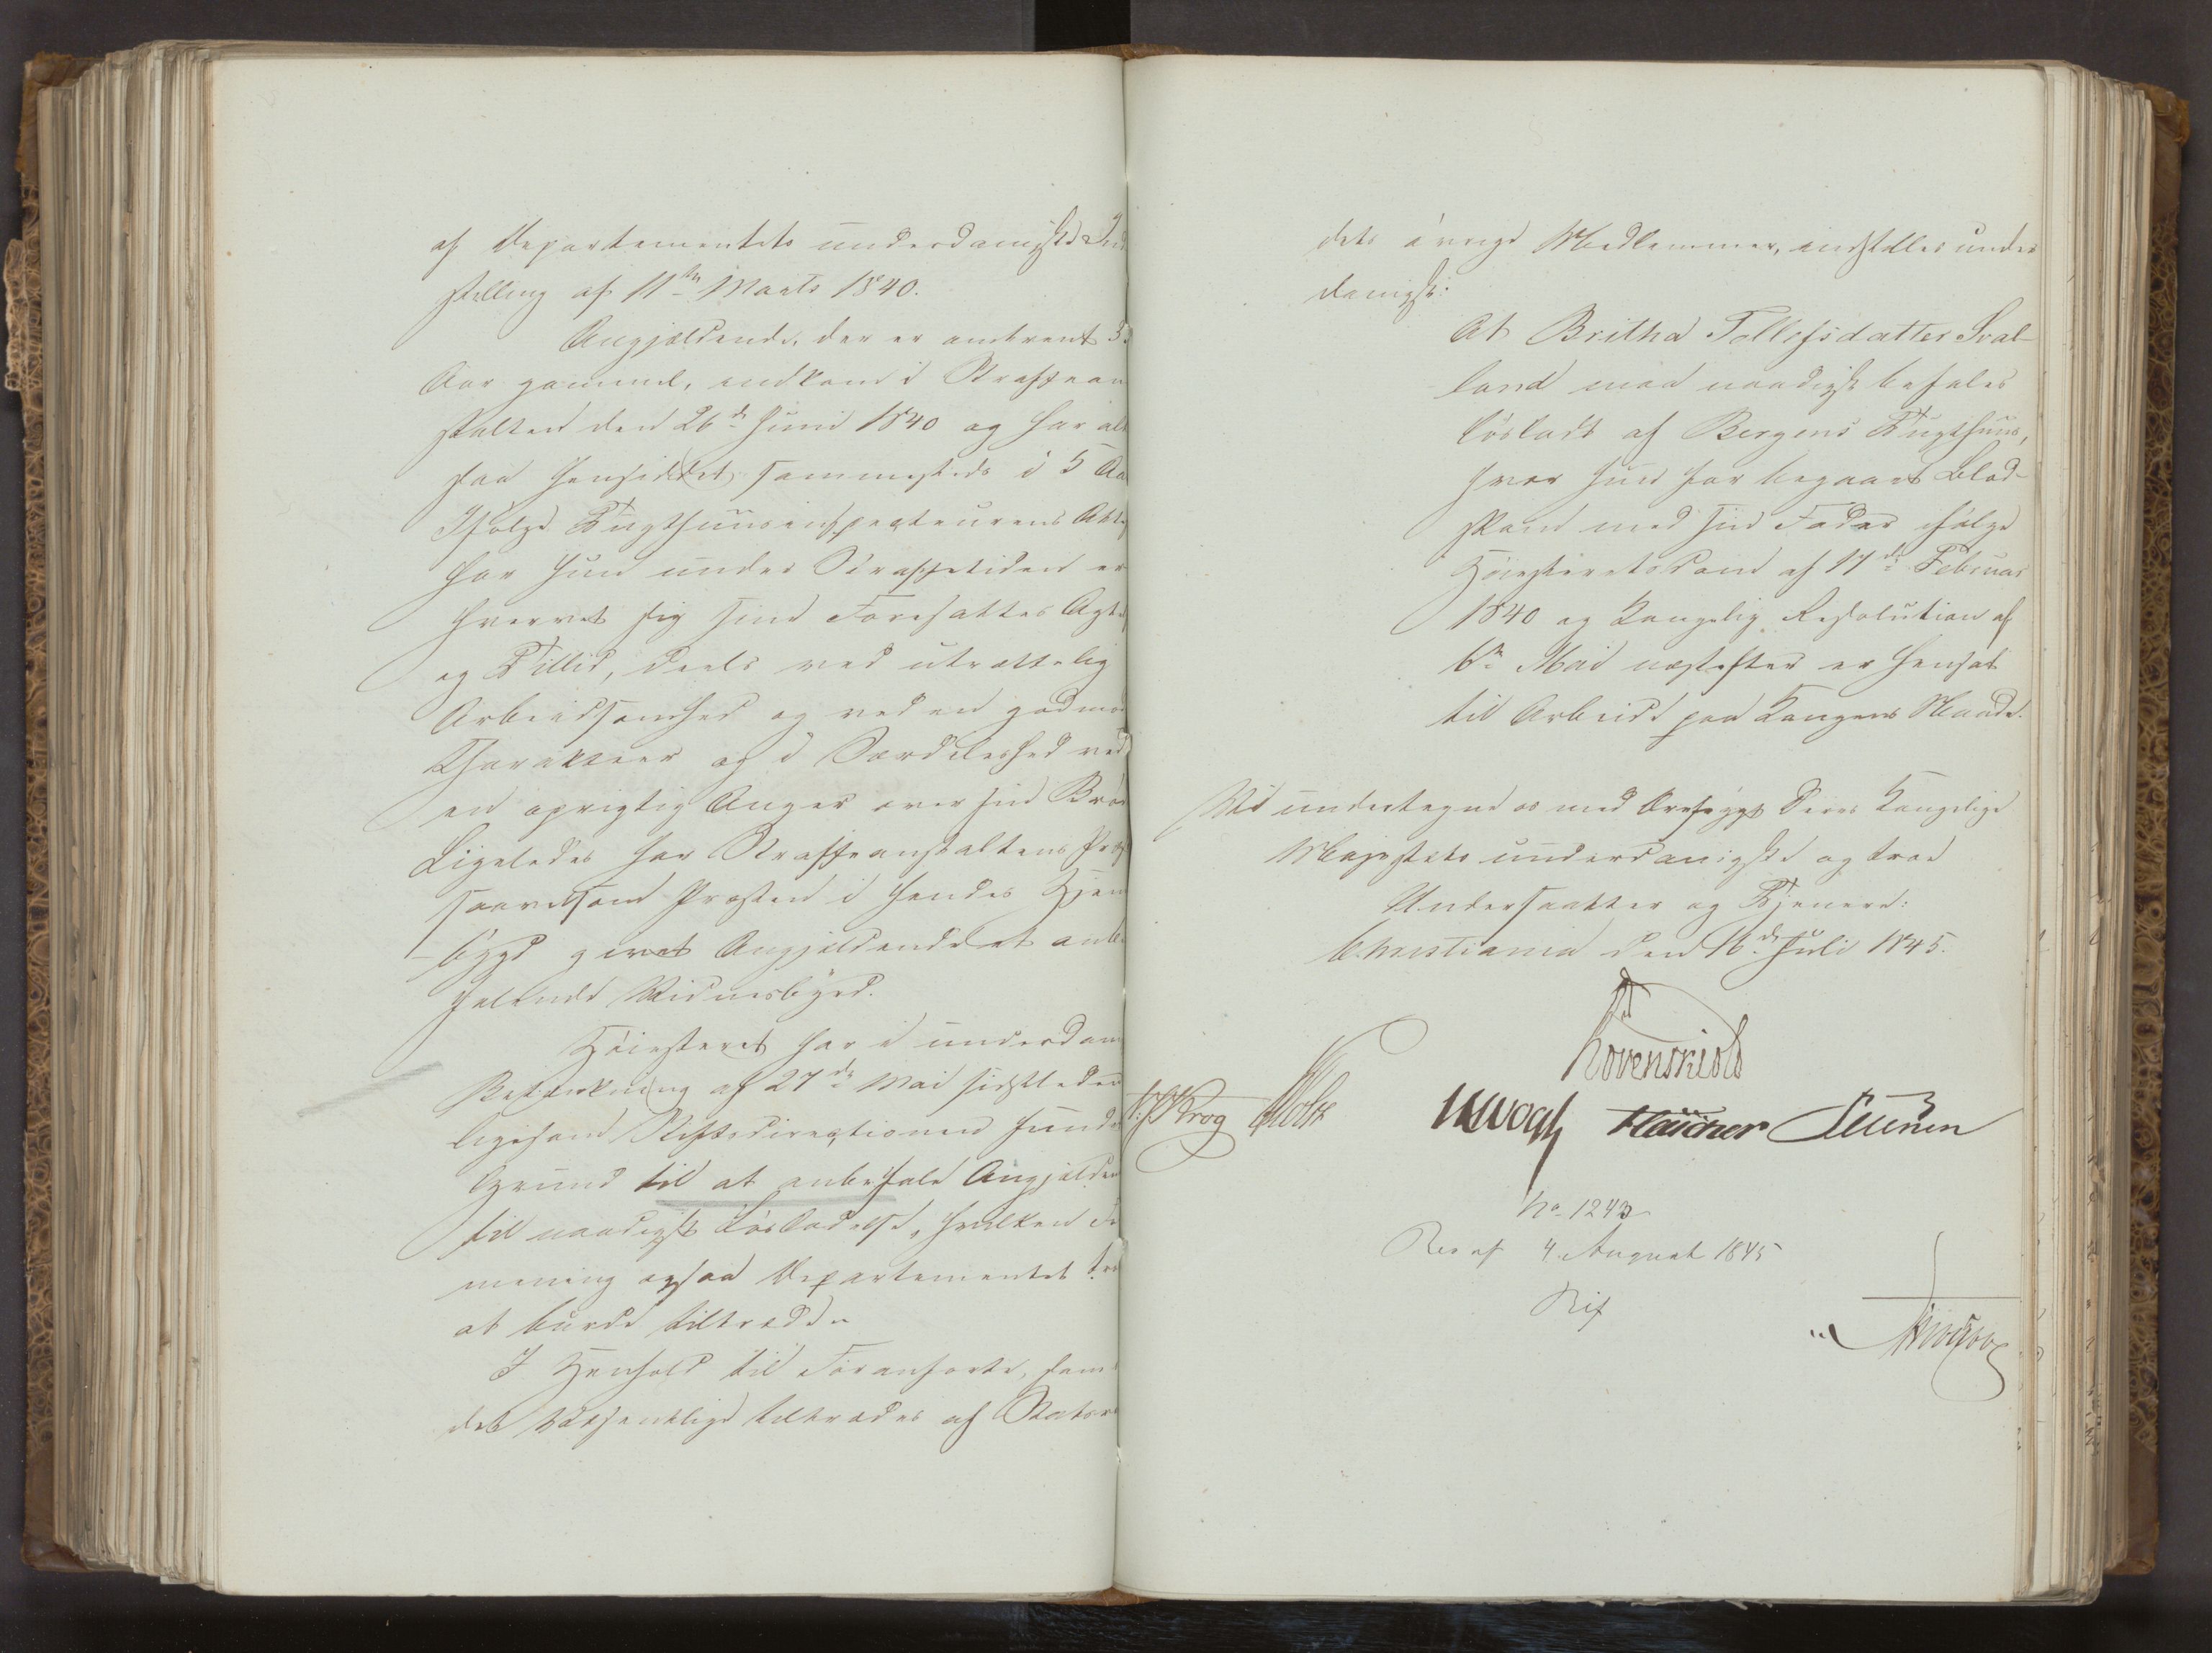 af Departementets underdanigste Ind
stilling af 11te Marts 1840.
Angjældende, der er omtrent 3
Aar gammel, indkom i Straffean
stalten den 26de Juni 1840 og har alt
saa hensiddet sammesteds i 5 Aa
Ifølge Tugthuusinspecteurens Att
har hun under Straffetiden er
hvervet sig sine Foresattes Agte
og Tillid, deels ved utrættelig
Arbeidsomhed og ved en godmo
Charakteer og i Særdeleshed ved
en oprigtig Anger over sin Brø
Ligeledes har Straffeanstaltens Præ
saavelsom Præsten i hendes Hjem
bygd givet Angjældende et anbe
falende Vidnesbyrd.
Høiesteret har i underdan
Betænkning af 27de Mai sidstleden
ligesom Stiftsdirectionen fund
Grund til at anbefale Angjælden
til naadigst Løsladelse, hvilken Fo
mening ogsaa Departementet tro
at burde tiltræde.
I Henhold til Foranførte, som
det væsentlige tiltrædes af Statsra
dets øvrige Medlemmer, indstilles under
danigst:
At Britha Tollefsdatter Sval-
land maa naadigst befales
løsladt af Bergens Tugthuus,
hvor hun for begaaet Blod-
skam med sin Fader ifølge
Høiesteretsdom af 17de Februar
1840 og Kongelig Resolution af
6te Mai næstefter er hensat
til Arbeide paa Kongens Naade.
Vi undertegne os med Ærefrygt Deres Kongelige
Majestæts underdanigste og troe
Undersaatter og Tjenere:
Christiania den 16de Juli 1845.
Løvenskiold
Krog Holst JHVogt
No 1243
Res af 4 August 1845